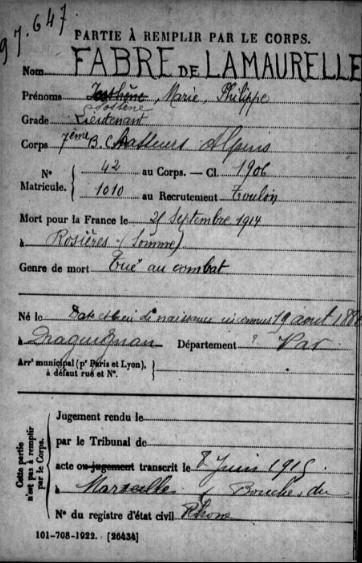 97.647
PARTIE À REMPLIR PAR LE CORPS.
Nom FABRE DE LAMAURELLE
Prénoms Josthène, Marie, Philippe
Sostène
Grade Lieutenant
Corps 7ème B. Chasseurs Alpins
N° Matricule. { 42 au Corps. — Cl. 1906
1010 au Recrutement Toulon
Mort pour la France le 25 Septembre 1914
à Rosières (Somme)
Genre de mort Tué au combat
Né le Date et lieu de naissance inconnus 19 aout
à Draguignan Département ? Var
Arrt municipal (pr Paris et Lyon), à défaut rue et N°. {
Cette partie n'est pas à remplir par le Corps.
Jugement rendu le
par le Tribunal de
acte ou jugement transcrit le 8 Juin 1915
à Marseille (Bouches du
N° du registre d'état civil Rhone
101-708-1922. [26434]